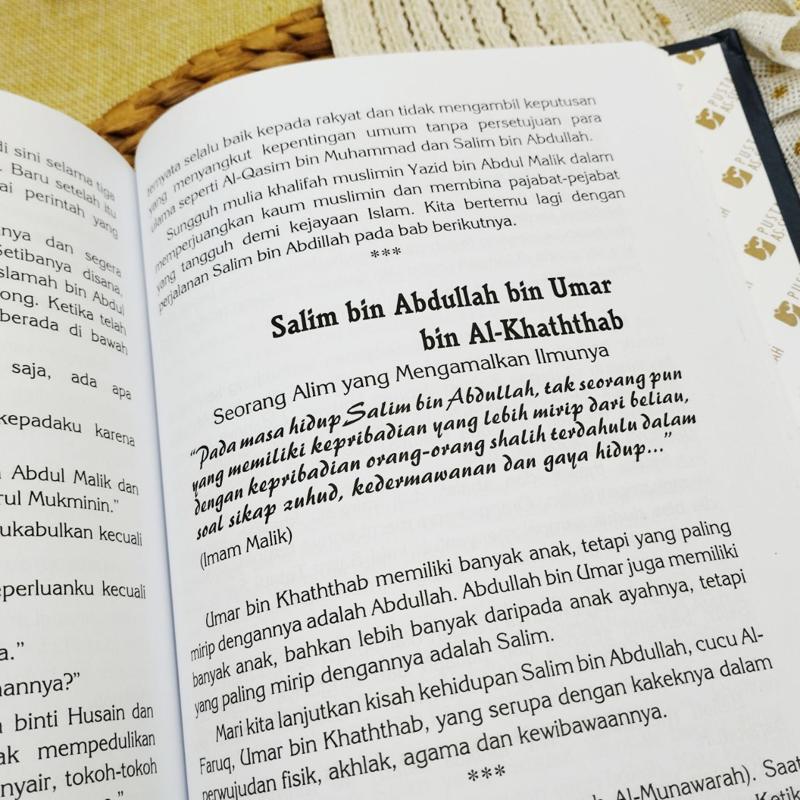 di sini selama tiga
Baru setelah itu
perintah yang
dan segera
Setibanya disana,
bin Abdul
Ketika telah
berada di bawah
saja, ada apa
kepadaku karena
Abdul Malik dan
Mukminin."
kecuali
kecuali
binti Husain dan
mempedulikan
tokoh-tokoh
ternyata selalu baik kepada rakyat dan tidak mengambil keputusan
yang menyangkut kepentingan umum tanpa persetujuan para
ulama seperti Al-Qasim bin Muhammad dan Salim bin Abdullah.
Sungguh mulia khalifah muslimin Yazid bin Abdul Malik dalam
memperjuangkan kaum muslimin dan membina pajabat-pejabat
yang tangguh demi kejayaan Islam. Kita bertemu lagi dengan
perjalanan Salim bin Abdillah pada bab berikutnya.
***
Salim bin Abdullah bin Umar
bin Al-Khaththab
Seorang Alim yang Mengamalkan Ilmunya
"Pada masa hidup Salim bin Abdullah, tak seorang pun
yang memiliki kepribadian yang lebih mirip dari beliau,
dengan kepribadian orang-orang shalih terdahulu dalam
soal sikap zuhud, kedermawanan dan gaya hidup..."
(Imam Malik)
Umar bin Khaththab memiliki banyak anak, tetapi yang paling
mirip dengannya adalah Abdullah. Abdullah bin Umar juga memiliki
banyak anak, bahkan lebih banyak daripada anak ayahnya, tetapi
yang paling mirip dengannya adalah Salim.
Mari kita lanjutkan kisah kehidupan Salim bin Abdullah, cucu Al-
Faruq, Umar bin Khaththab, yang serupa dengan kakeknya dalam
perwujudan fisik, akhlak, agama dan kewibawaannya.
***
Al-Munawarah). Saat